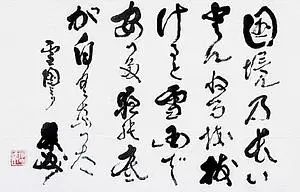 國境乃長い
とんねるを抜
けると雪国で
あつた夜の底
が白くなつた
雪國より